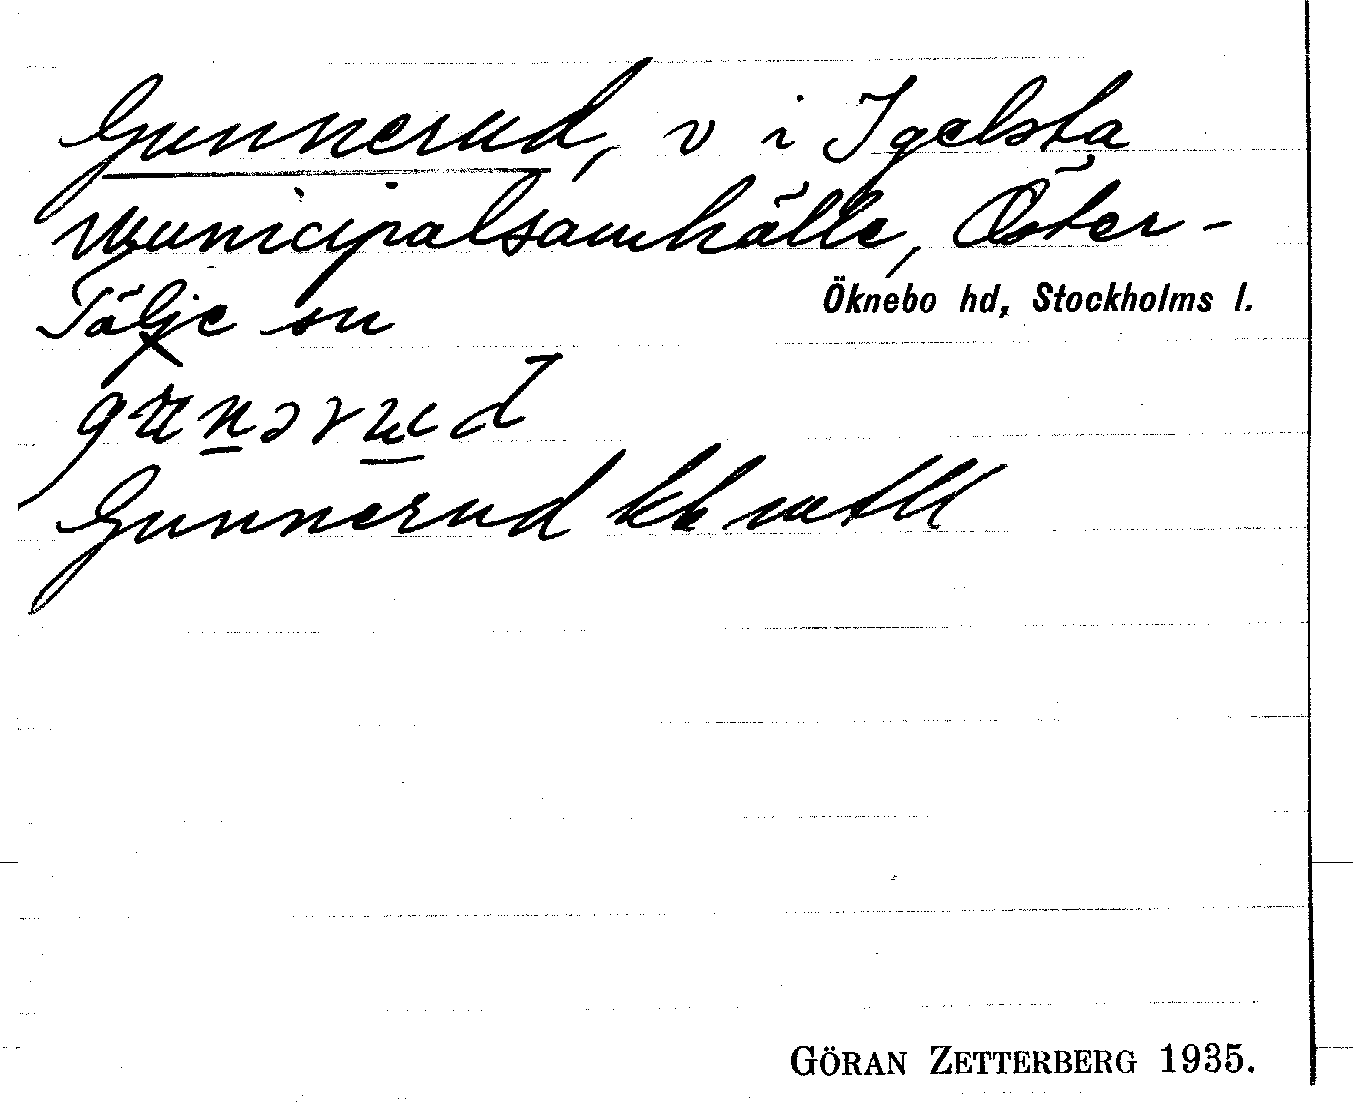 Gunnerud, v i Igelsta
Municipalsamhälle, Öster-
Tälje sn
Öknebo hd, Stockholms l.
Gunnerud
GÖRAN ZETTERBERG 1935.